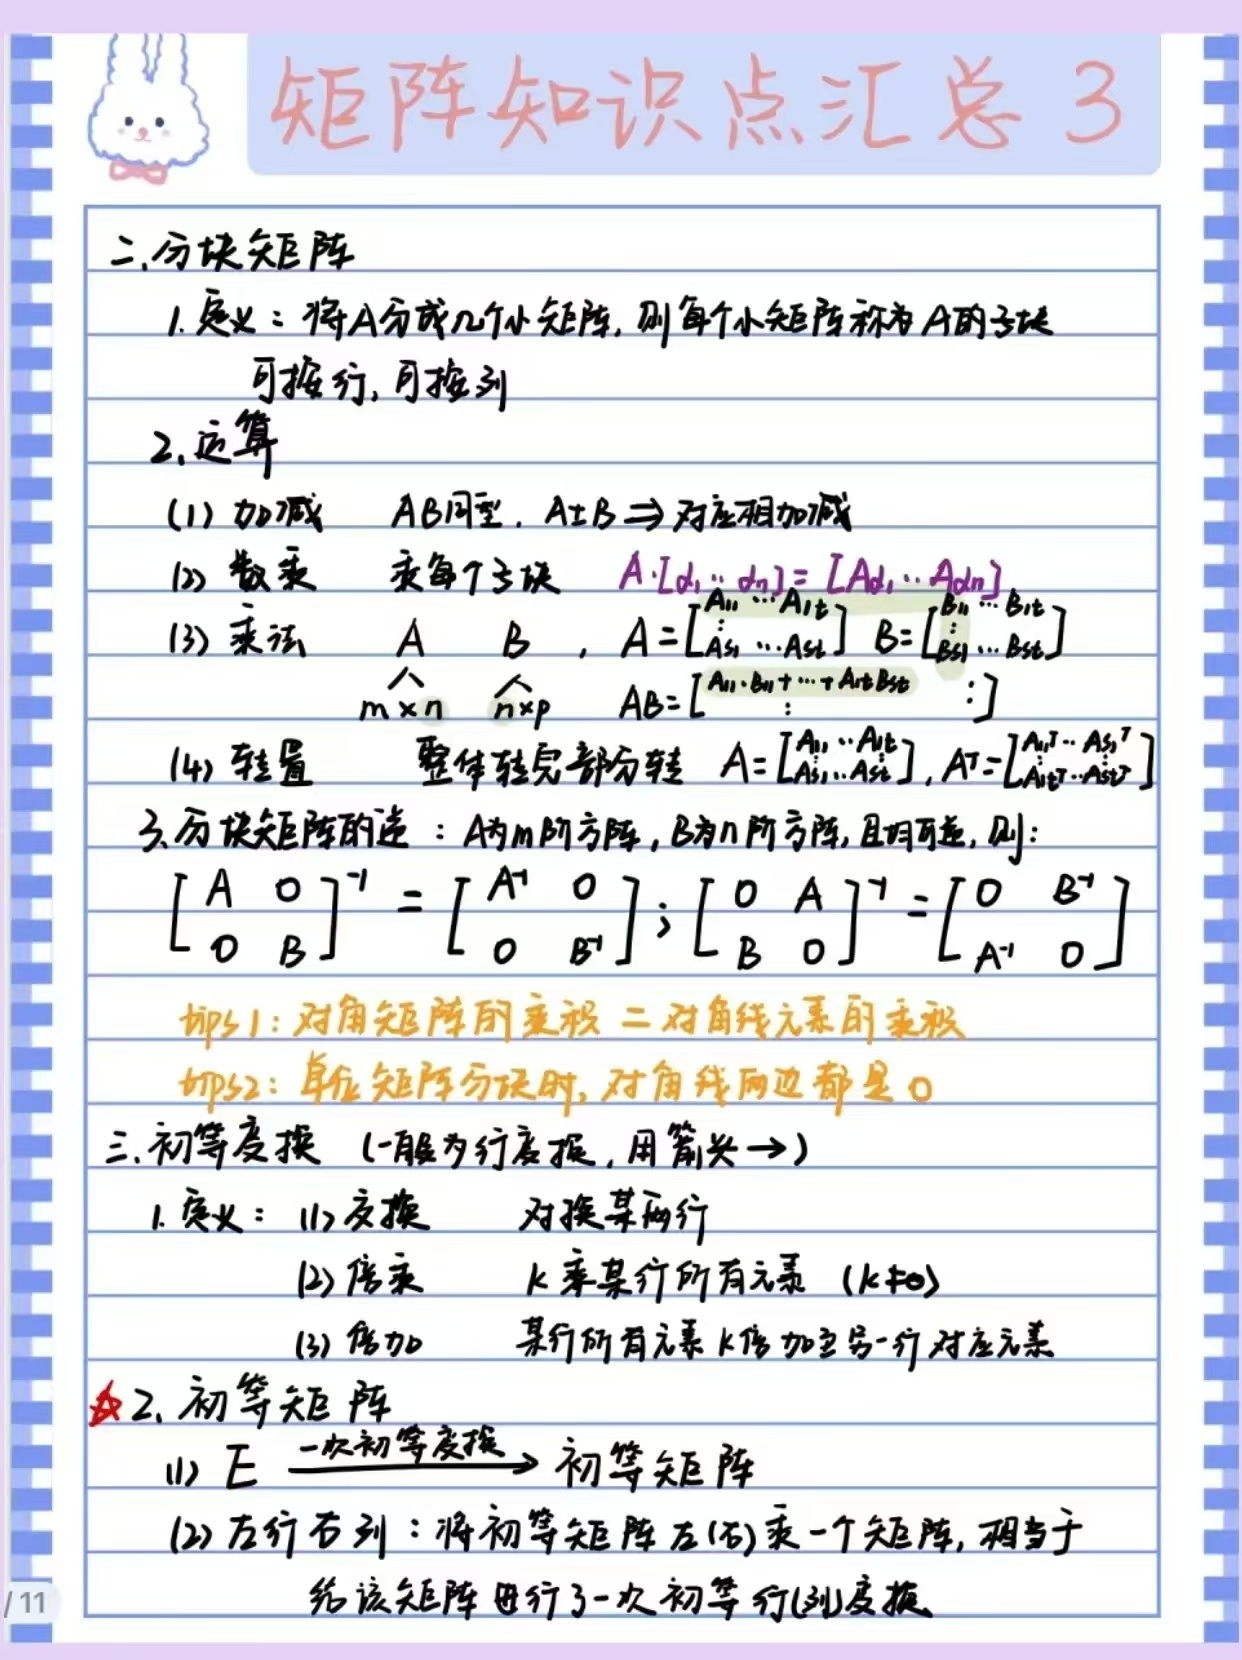 矩阵知识点汇总 3
二、分块矩阵
1. 定义：将A分成几个小矩阵，则每个小矩阵称为A的子块
可按行，可按列
2. 运算
(1) 加减 AB同型，A±B⇒对应相加减
(2) 数乘 乘每个子块 A·[α₁ ·· αn] = [Aα₁ ·· Aαn]
(3) 乘法 A B , A=[A₁₁ ··· A₁t ⋮ As₁ ··· Ast] B=[B₁₁ ··· B₁t ⋮ Bs₁ ··· Bst]
m×n n×p AB=[A₁₁·B₁₁+···+A₁tBst ⋮ ⋮]
(4) 转置 整体转完部分转 A=[A₁₁ ·· A₁t ⋮ As₁ ·· Ast], Aᵀ=[A₁₁ᵀ ·· As₁ᵀ ⋮ A₁tᵀ ·· Astᵀ]
3. 分块矩阵的逆：A为m阶方阵，B为n阶方阵，且均可逆，则：
[A 0 0 B]⁻¹ = [A⁻¹ 0 0 B⁻¹]；[0 A B 0]⁻¹ = [0 B⁻¹ A⁻¹ 0]
tips1：对角矩阵的乘积 = 对角线元素的乘积
tips2：单位矩阵分块时，对角线两边都是0
三、初等变换 (一般为行变换，用箭头→)
1. 定义：(1) 交换 对换某两行
(2) 倍乘 k乘某行所有元素 (k≠0)
(3) 倍加 某行所有元素k倍加至另一行对应元素
☆2. 初等矩阵
(1) E 一次初等变换→ 初等矩阵
(2) 左行右列：将初等矩阵左(右)乘一个矩阵，相当于
给该矩阵进行了一次初等行(列)变换
/ 11